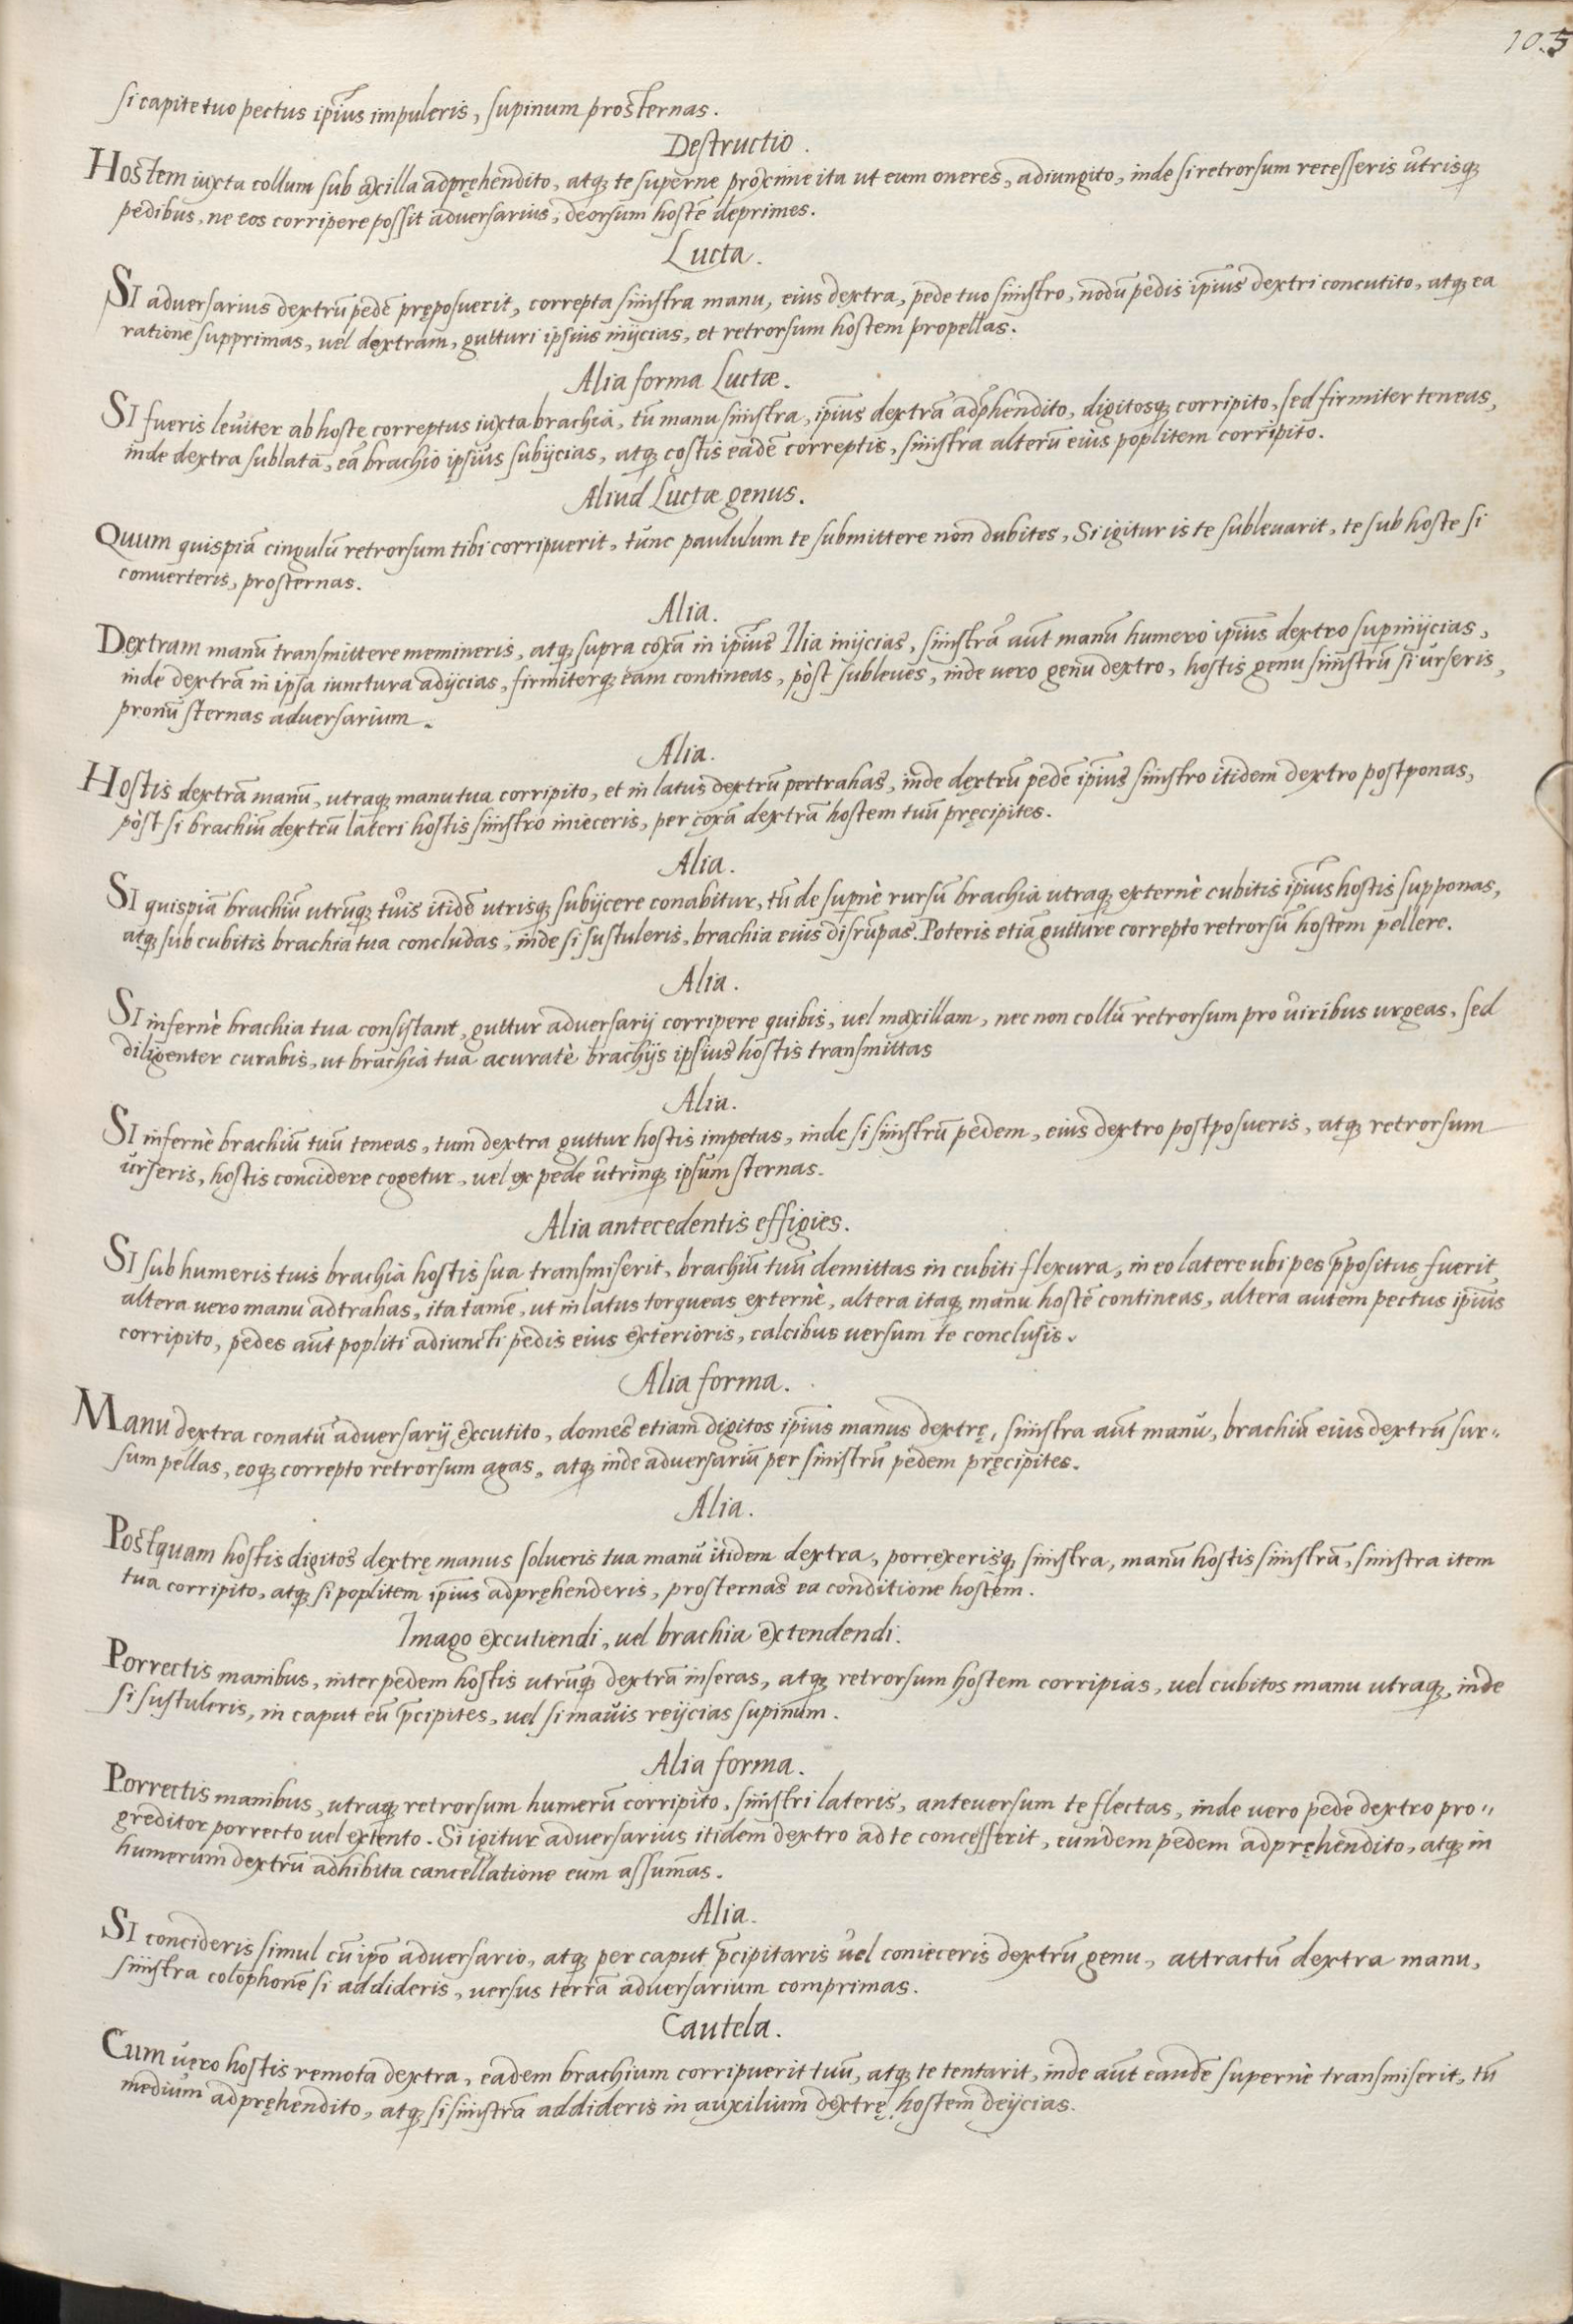 10.5
si capite tuo pectus ip̃ius impuleris, supinum prosternas.
Destructio.
Hostem iuxta collum sub axilla adpręhendito, atq; te superne proxime ita ut eum oneres, adiungito, inde si retrorsum recesseris utrisq;
pedibus, ne eos corripere possit adversarius, deorsum hostẽ deprimes.
Lucta.
SI adversarius dextrũ pedẽ pręposuerit, correpta sinistra manu, eius dextra, pede tuo sinistro, nodũ pedis ip̃ius dextri concutito, atq; ea
ratione supprimas, vel dextram, gutturi ipsius iniicias, et retrorsum hostem propellas.
Alia forma Luctæ.
SI fueris leviter ab hoste correptus iuxta brachia, tũ manu sinistra, ip̃ius dextrã adp̃hendito, digitosq; corripito, sed firmiter teneas,
inde dextra sublata, eã brachio ipsius subijcias, atq; costis eadẽ correptis, sinistra alterũ eius poplitem corripito.
Aliud Luctæ genus.
Quum quispiã cingulũ retrorsum tibi corripuerit, tunc paululum te submittere non dubites, Si igitur is te sublevarit, te sub hoste si
converteris, prosternas.
Alia.
Dextram manũ transmittere memineris, atq; supra coxã in ip̃ius Ilia iniicias, sinistrã aũt manũ humero ip̃ius dextro supiniicias,
inde dextrã in ipsa iunctura adijcias, firmiterq; eam contineas, pòst subleves, inde vero genu dextro, hostis genu sinistrũ si urseris,
pronũ sternas adversarium.
Alia.
Hostis dextrã manũ, utraq; manu tua corripito, et in latus dextrũ pertrahas, inde dextrũ pedẽ ip̃ius sinistro itidem dextro postponas,
pòst si brachiũ dextrũ lateri hostis sinistro inieceris, per coxã dextrã hostem tuũ pręcipites.
Alia.
SI quispiã brachiũ utrũq; tuis itidẽ utrisq; subijcere conabitur, tũ de supnè rursũ brachia utraq; externè cubitis ip̃ius hostis supponas,
atq; sub cubitis brachia tua concludas, inde si sustuleris, brachia eius disrũpas. Poteris etiã gutture correpto retrorsũ hostem pellere.
Alia.
SI infernè brachia tua consistant, guttur adversarij corripere quibis, vel maxillam, nec non collũ retrorsum pro viribus urgeas, sed
diligenter curabis, ut brachia tua acuratè brachijs ipsius hostis transmittas
Alia.
SI infernè brachiũ tuũ teneas, tum dextra guttur hostis impetas, inde si sinistrũ pedem, eius dextro postposueris, atq; retrorsum
urseris, hostis concidere cogetur, vel ex pede utrinq; ipsum sternas.
Alia antecedentis effigies.
SI sub humeris tuis brachia hostis sua transmiserit, brachiũ tuũ demittas in cubiti flexura, in eo latere ubi pes p̃positus fuerit
altera vero manu adtrahas, ita tamẽ, ut in latus torqueas externè, altera itaq; manu hostẽ contineas, altera autem pectus ip̃ius
corripito, pedes aũt popliti adiuncti pedis eius exterioris, calcibus versum te conclusis.
Alia forma.
Manu dextra conatũ adversarij excutito, domes etiam digitos ip̃ius manus dextrę, sinistra aũt manu, brachiũ eius dextrũ sur=
sum pellas, eoq; correpto retrorsum agas, atq; inde adversariũ per sinistrũ pedem pręcipites.
Alia.
Postquam hostis digitos dextrę manus solveris tua manu itidem dextra, porrexerisq; sinistra, manũ hostis sinistrã, sinistra item
tua corripito, atq; si poplitem ip̃ius adpręhenderis, prosternas ea conditione hostem.
Imago excutiendi, vel brachia extendendi.
Porrectis manibus, inter pedem hostis utrũq; dextrã inseras, atq; retrorsum hostem corripias, vel cubitos manu utraq;, inde
si sustuleris, in caput eũ p̃cipites, vel si mavis reijcias supinum.
Alia forma.
Porrectis manibus, utraq; retrorsum humerũ corripito, sinistri lateris, anteversum te flectas, inde vero pede dextro pro=
greditor porrecto vel extento. Si igitur adversarius itidem dextro ad te concesserit, eundem pedem adpręhendito, atq; in
humerum dextrũ adhibita cancellatione eum assumas.
Alia.
SI concideris simul cũ ip̃o adversario, atq; per caput p̃cipitaris vel conieceris dextrũ genu, attractũ dextra manu,
sinistra colophonẽ si addideris, versus terrã adversarium comprimas.
Cautela.
Cum vero hostis remota dextra, eadem brachium corripuerit tuũ, atq; te tentarit, inde aũt eandẽ supernè transmiserit, tũ
medium adpręhendito, atq; si sinistrã addideris in auxilium dextrę, hostem deijcias.